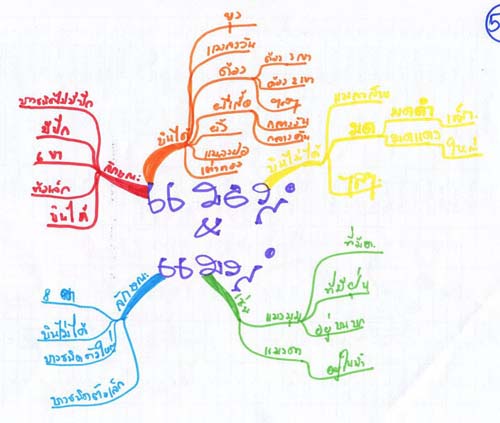 5
ยุง
แมลงวัน
ด้วง
ด้วง 3 เขา
ด้วง 2 เขา
ฯลฯ
ผีเสื้อ
กลางวัน
กลางคืน
ผึ้ง
แมลงปอ
เต่าทอง
บินได้
บินไม่ได้
มด
มดดำ
เล็ก
มดแดง
ใหญ่
ฯลฯ
บางชนิดไม่มีปีก
มีปีก
6 ขา
ตัวเล็ก
บินได้
ลักษณะ
แมลง
&
แมง
ลักษณะ
8 ขา
บินไม่ได้
บางชนิดตัวใหญ่
บางชนิดตัวเล็ก
เช่น
แมงมุม
อยู่บนบก
แมงดา
อยู่ในน้ำ